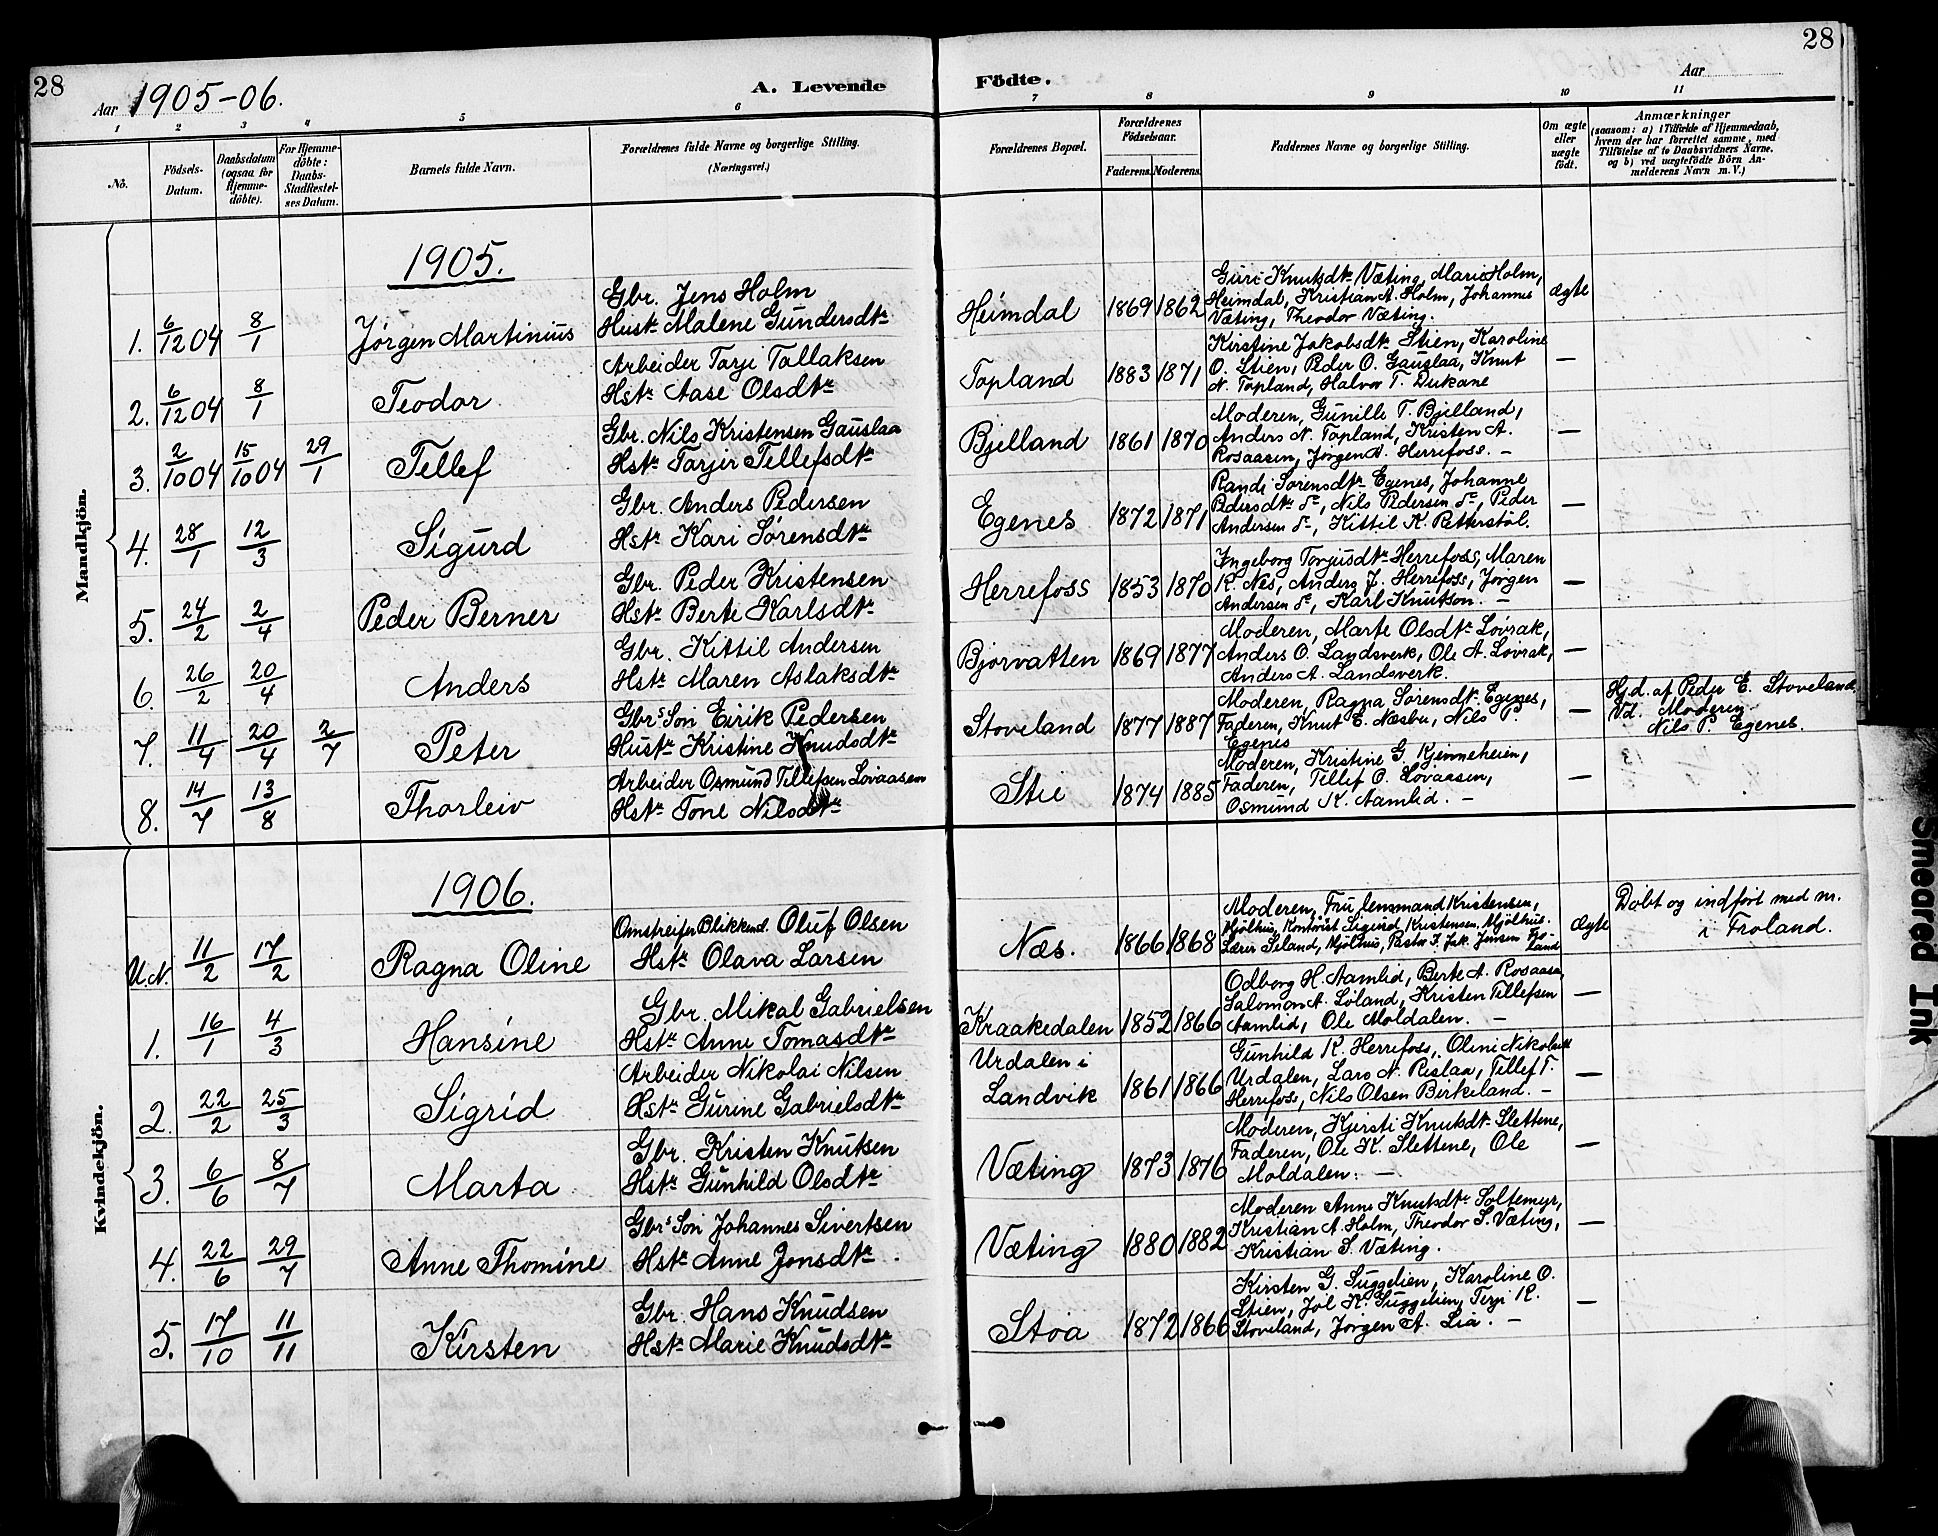 28
28
Aar 1905-06.
A. Levende
Födte.
Aar
1 2 3 4 5 6 7 8 9 10 11
No.
Födsels-Datum.
Daabsdatum (ogsaa for Hjemme-döbte).
For Hjemme-döbte: Daabs-Stadfæstel-ses Datum.
Barnets fulde Navn.
Forældrenes fulde Navne og borgerlige Stilling.
(Næringsvei.)
Forældrenes Bopæl.
Forældrenes Födselsaar.
Faderens. Moderens.
Faddernes Navne og borgerlige Stilling.
Om ægte eller uægte født.
Anmærkninger
(saasom: a) i Tilfælde af Hjemmedaab, hvem der har forrettet samme, med Tilföielse af to Daabsvidners Navne, og b) ved uægtefödte Börn An-melderens Navn m. V.)
Mandkjön.
1905.
1. 6/12 04 8/1 Jørgen Martinius
Gbr. Jens Holm
Hustr. Malene Gundersdtr.
Heimdal 1869 1862
Guri Knutsdtr. Væting, Marie Holm,
Heimdal, Kristian A. Holm, Johannes
Væting, Theodor Væting.
ægte
2. 6/12 04 8/1 Teodor
Arbeider Tarje Tallaksen
Hstr. Aase Olsdtr.
Topland 1883 1871
Kirstine Jakobsdtr. Stien, Karoline
O. Stien, Peder O. Gauslaa, Knut
N. Topland, Halvor T. Dukane
—
3. 2/10 04 15/10 04 29/1 Tellef
Gbr. Nils Kristensen Gauslaa
Hstr. Tarjer Tellefsdtr.
Bjelland 1861 1870
Moderen, Gunille T. Bjelland,
Anders N. Topland, Kristen A.
Rosaasen, Jørgen A. Herrefoss. –
—
4. 28/1 12/3 Sigurd
Gbr. Anders Pedersen
Hstr. Kari Sørensdtr.
Egenes 1872 1871
Randi Sørensdtr. Egenes, Johanne
Pedersdtr. do, Nils Pedersen do, Peder
Andersen do, Kittil K. Retterstøl.
—
5. 24/2 2/4 Peder Berner
Gbr. Peder Kristensen
Hstr. Berte Karlsdtr.
Herrefoss 1853 1870
Ingeborg Torjusdtr. Herrefoss, Maren
K. Nes, Anders J. Herrefoss, Jørgen
Andersen do, Karl Knutson. –
—
6. 26/2 20/4 Anders
Gbr. Kittil Andersen
Hstr. Maren Aslaksdtr.
Bjorvatten 1869 1877
Moderen, Marte Olsdtr. Lovrak,
Anders O. Landsverk, Ole A. Lovrak,
Anders A. Landsverk.
—
7. 11/4 20/4 2/7 Peter
Gbrs Søn Eirik Pedersen
Hustr. Kristine Knudsdtr.
Stoveland 1877 1887
Moderen, Ragna Sørensdtr. Egenes,
Faderen, Knut E. Næsbu, Nils P.
Egenes
—
Hj.d. af Peder E. Stoveland
Vd. Moderen
Nils P. Egenes.
8. 14/7 13/8 Thorleiv
Arbeider Osmund Tellefsen Lovaasen
Hstr. Tone Nilsdtr.
Stie 1874 1885
Moderen, Kristine G. Kjenneheien,
Faderen, Tellef O. Lovaasen,
Osmund K. Aamlid. –
—
Kvindekjön.
1906.
U.N. 11/2 17/2 Ragna Oline
Omstreifer Blikkensl. Oluf Olsen
Hstr. Olava Larsen
Næs. 1866 1868
Moderen, Fru lensmand Kristensen,
Mjølhus, Kontorist Sigurd Kristensen, Mjølhus.
Lærer Seland, Mjølhus, Pastor I. Jak. Jensen Fro-
land
Ægte
Døbt og indført med nr.
i Froland.
1. 16/1 4/3 Hansine
Gbr. Mikal Gabrielsen
Hstr. Anne Tomasdtr.
Kraakedalen 1852 1866
Odborg H. Aamlid, Berte A. Rosaasen,
Salomon A. Løland, Kristen Tellefsen
Aamlid, Ole Moldalen. –
—
2. 22/2 25/3 Sigrid
Arbeider Nikolai Nilsen
Hstr. Gurine Gabrielsdtr.
Urdalen i
Landvik 1861 1866
Gunhild K. Herrefoss, Oline Nikolaidtr
Urdalen, Lars N. Rislaa, Tellef T.
Herrefoss, Nils Olsen Birkeland. –
—
3. 6/6 8/7 Marta
Gbr. Kristen Knutsen
Hstr. Gunhild Olsdtr.
Væting 1873 1876
Moderen, Kjersti Knutsdtr. Slettene,
Faderen, Ole K. Slettene, Ole
Moldalen. —
—
4. 22/6 29/7 Anne Thomine
Gbrs Søn Johannes Sivertsen
Hstr. Anne Jonsdtr.
Væting 1880 1882
Moderen Anne Knutsdtr. Soltemyr,
Kristian A. Holm, Theodor S. Væting,
Kristian S. Væting.
—
5. 17/10 11/11 Kirsten
Gbr. Hans Knudsen
Hstr. Marie Knudsdtr.
Stoa 1872 1866
Kirsten G. Suggelien, Karoline O.
Stien, Joh K. Suggelien, Terji K.
Stoveland, Jørgen A. Lia. –
—
Smeared Ink